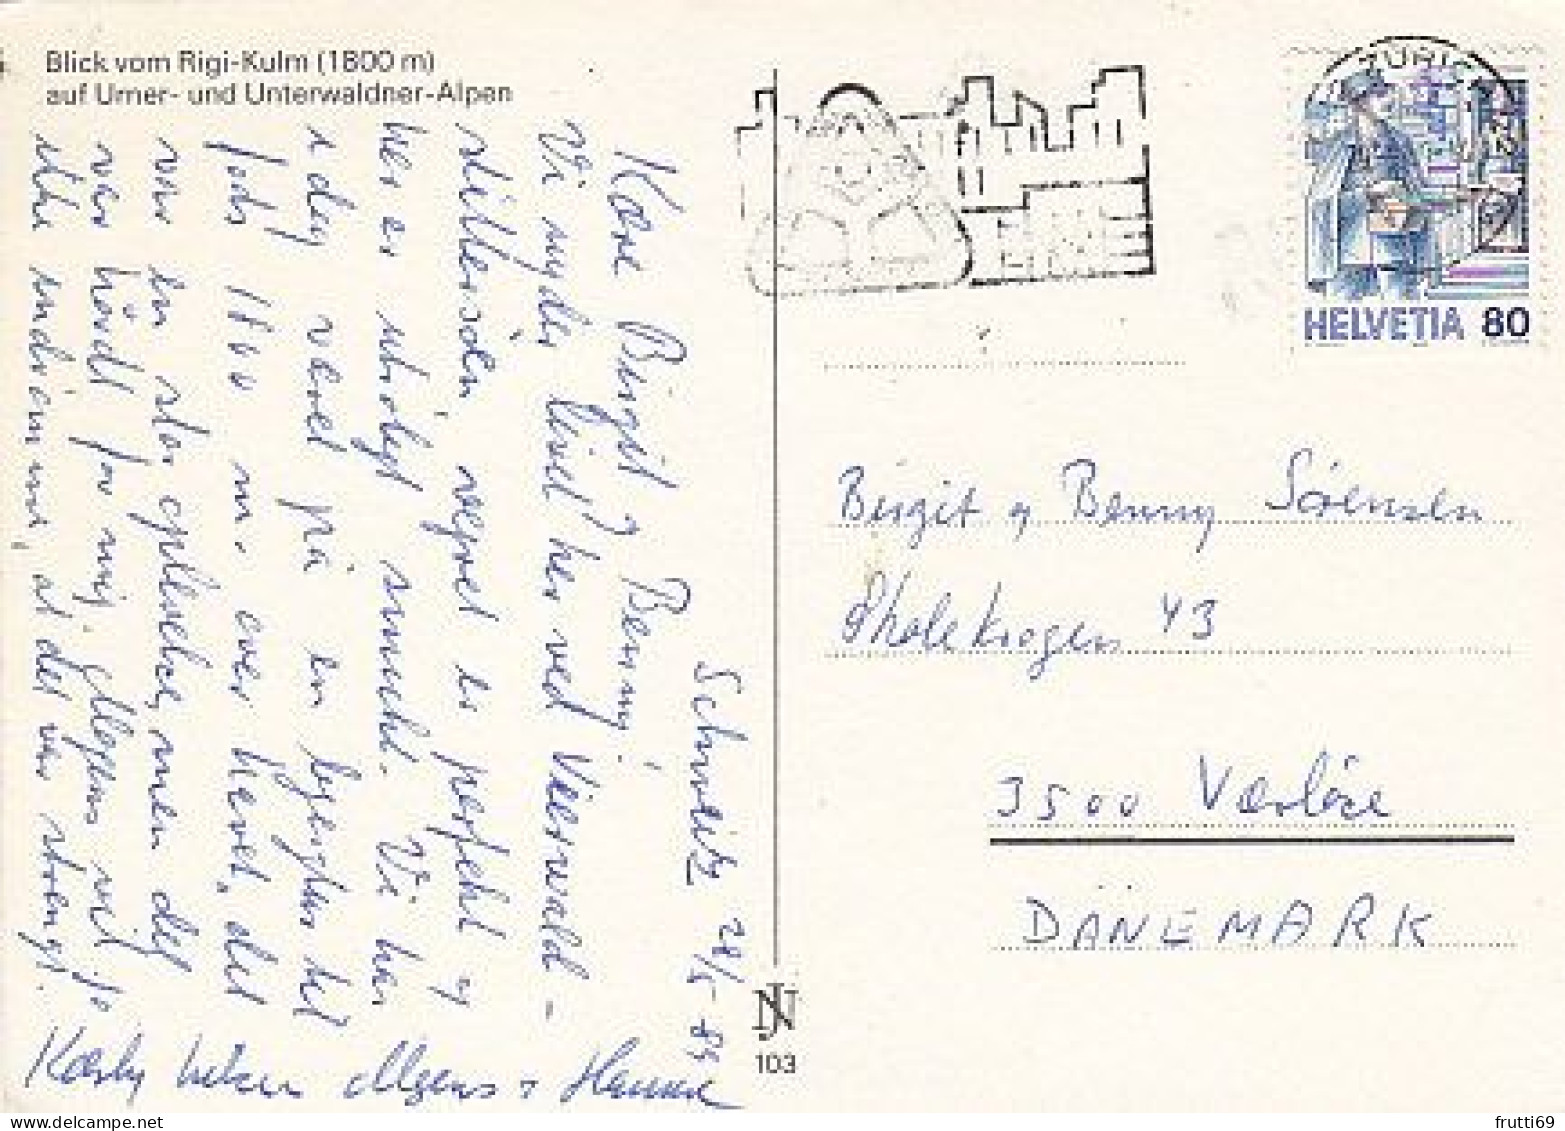 Blick vom Rigi-Kulm (1800 m)
auf Urner- und Unterwaldner-Alpen
Schweitz 28/5-89
Kære Birgit & Benny!
Vi nyder livet her ved Vierwald-
stillersøen, vejret er perfekt og
her er utroligt smukt. Vi har
i dag været på en bjergtur til
1800 m. over havet, det
var en stor oplevelse, men det
var hårdt for mig. Mogens vil jo
ikke indrømme, at det var strengt.
Kærlig hilsen Mogens & Hanne
NJ
103
ZÜRICH
HELVETIA 80
Birgit og Benny Sørensen
43
3500 Værløse
DÄNEMARK
frutti69